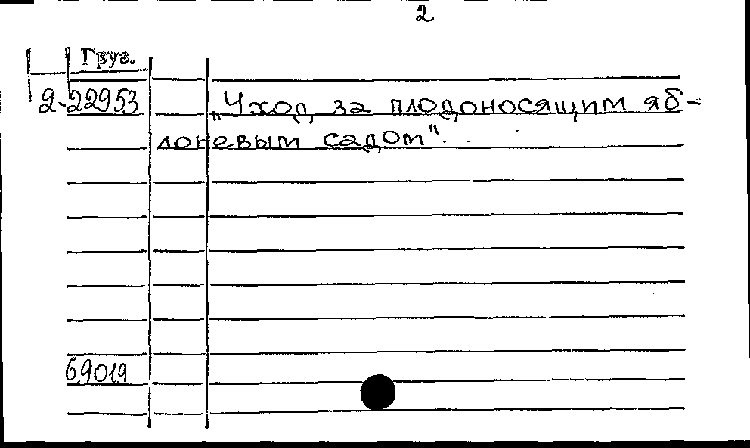 2
Груз.
2-22953 „Уход за плодоносящим яб-
лоневым садом".
69019